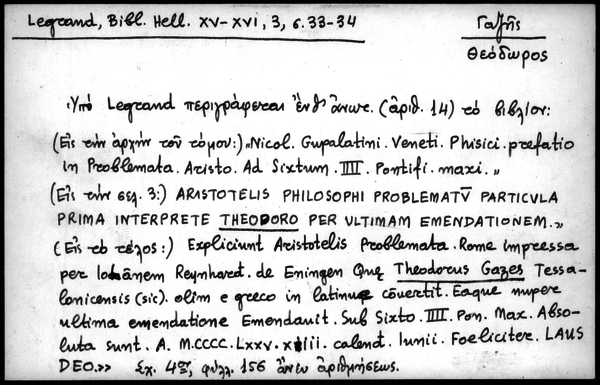 Legrand, Bibl. Hell. XV-XVI, 3, σ. 33-34
Γαζῆς
Θεόδωρος
Ὑπὸ Legrand περιγράφεται ἔνθ' ἄνωτ. (ἀριθ. 14) τὸ βιβλίον:
(Εἰς τὴν ἀρχὴν τοῦ τόμου:) «Nicol. Gupalatini. Veneti. Phisici. prefatio
in Problemata. Aristo. Ad Sixtum. IIII. Pontifi. maxi.»
(Εἰς τὴν σελ. 3:) ARISTOTELIS PHILOSOPHI PROBLEMATV̄ PARTICVLA
PRIMA INTERPRETE THEODORO PER ULTIMAM EMENDATIONEM.»
(Εἰς τὸ τέλος:) Expliciunt Aristotelis Problemata. Rome impressa
per Iohānem Reynhard. de Eningen Que Theodorus Gazes Tessa-
lonicensis (sic). olim e greco in latinum cōuertit. Eaque nuper
ultima emendatione Emendauit. Sub Sixto. IIII. Pon. Max. Abso-
luta sunt. A. M.CCCC.Lxxv. xiii. calend. Iunii. Foeliciter. LAUS
DEO.»» Σχ. 4ον, φύλλ. 156 ἄνευ ἀριθμήσεως.